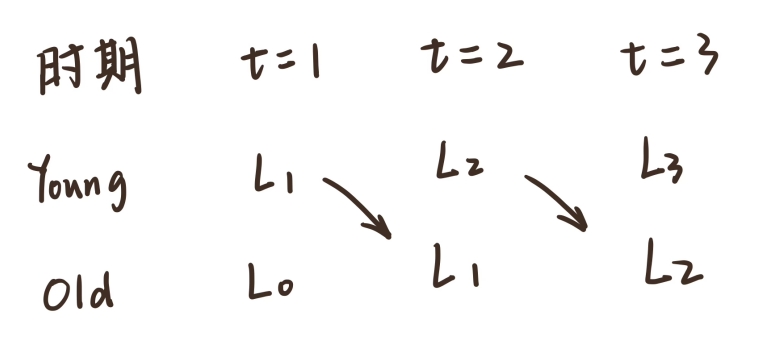 时期 t=1 t=2 t=3
Young L1 L2 L3
Old L0 L1 L2